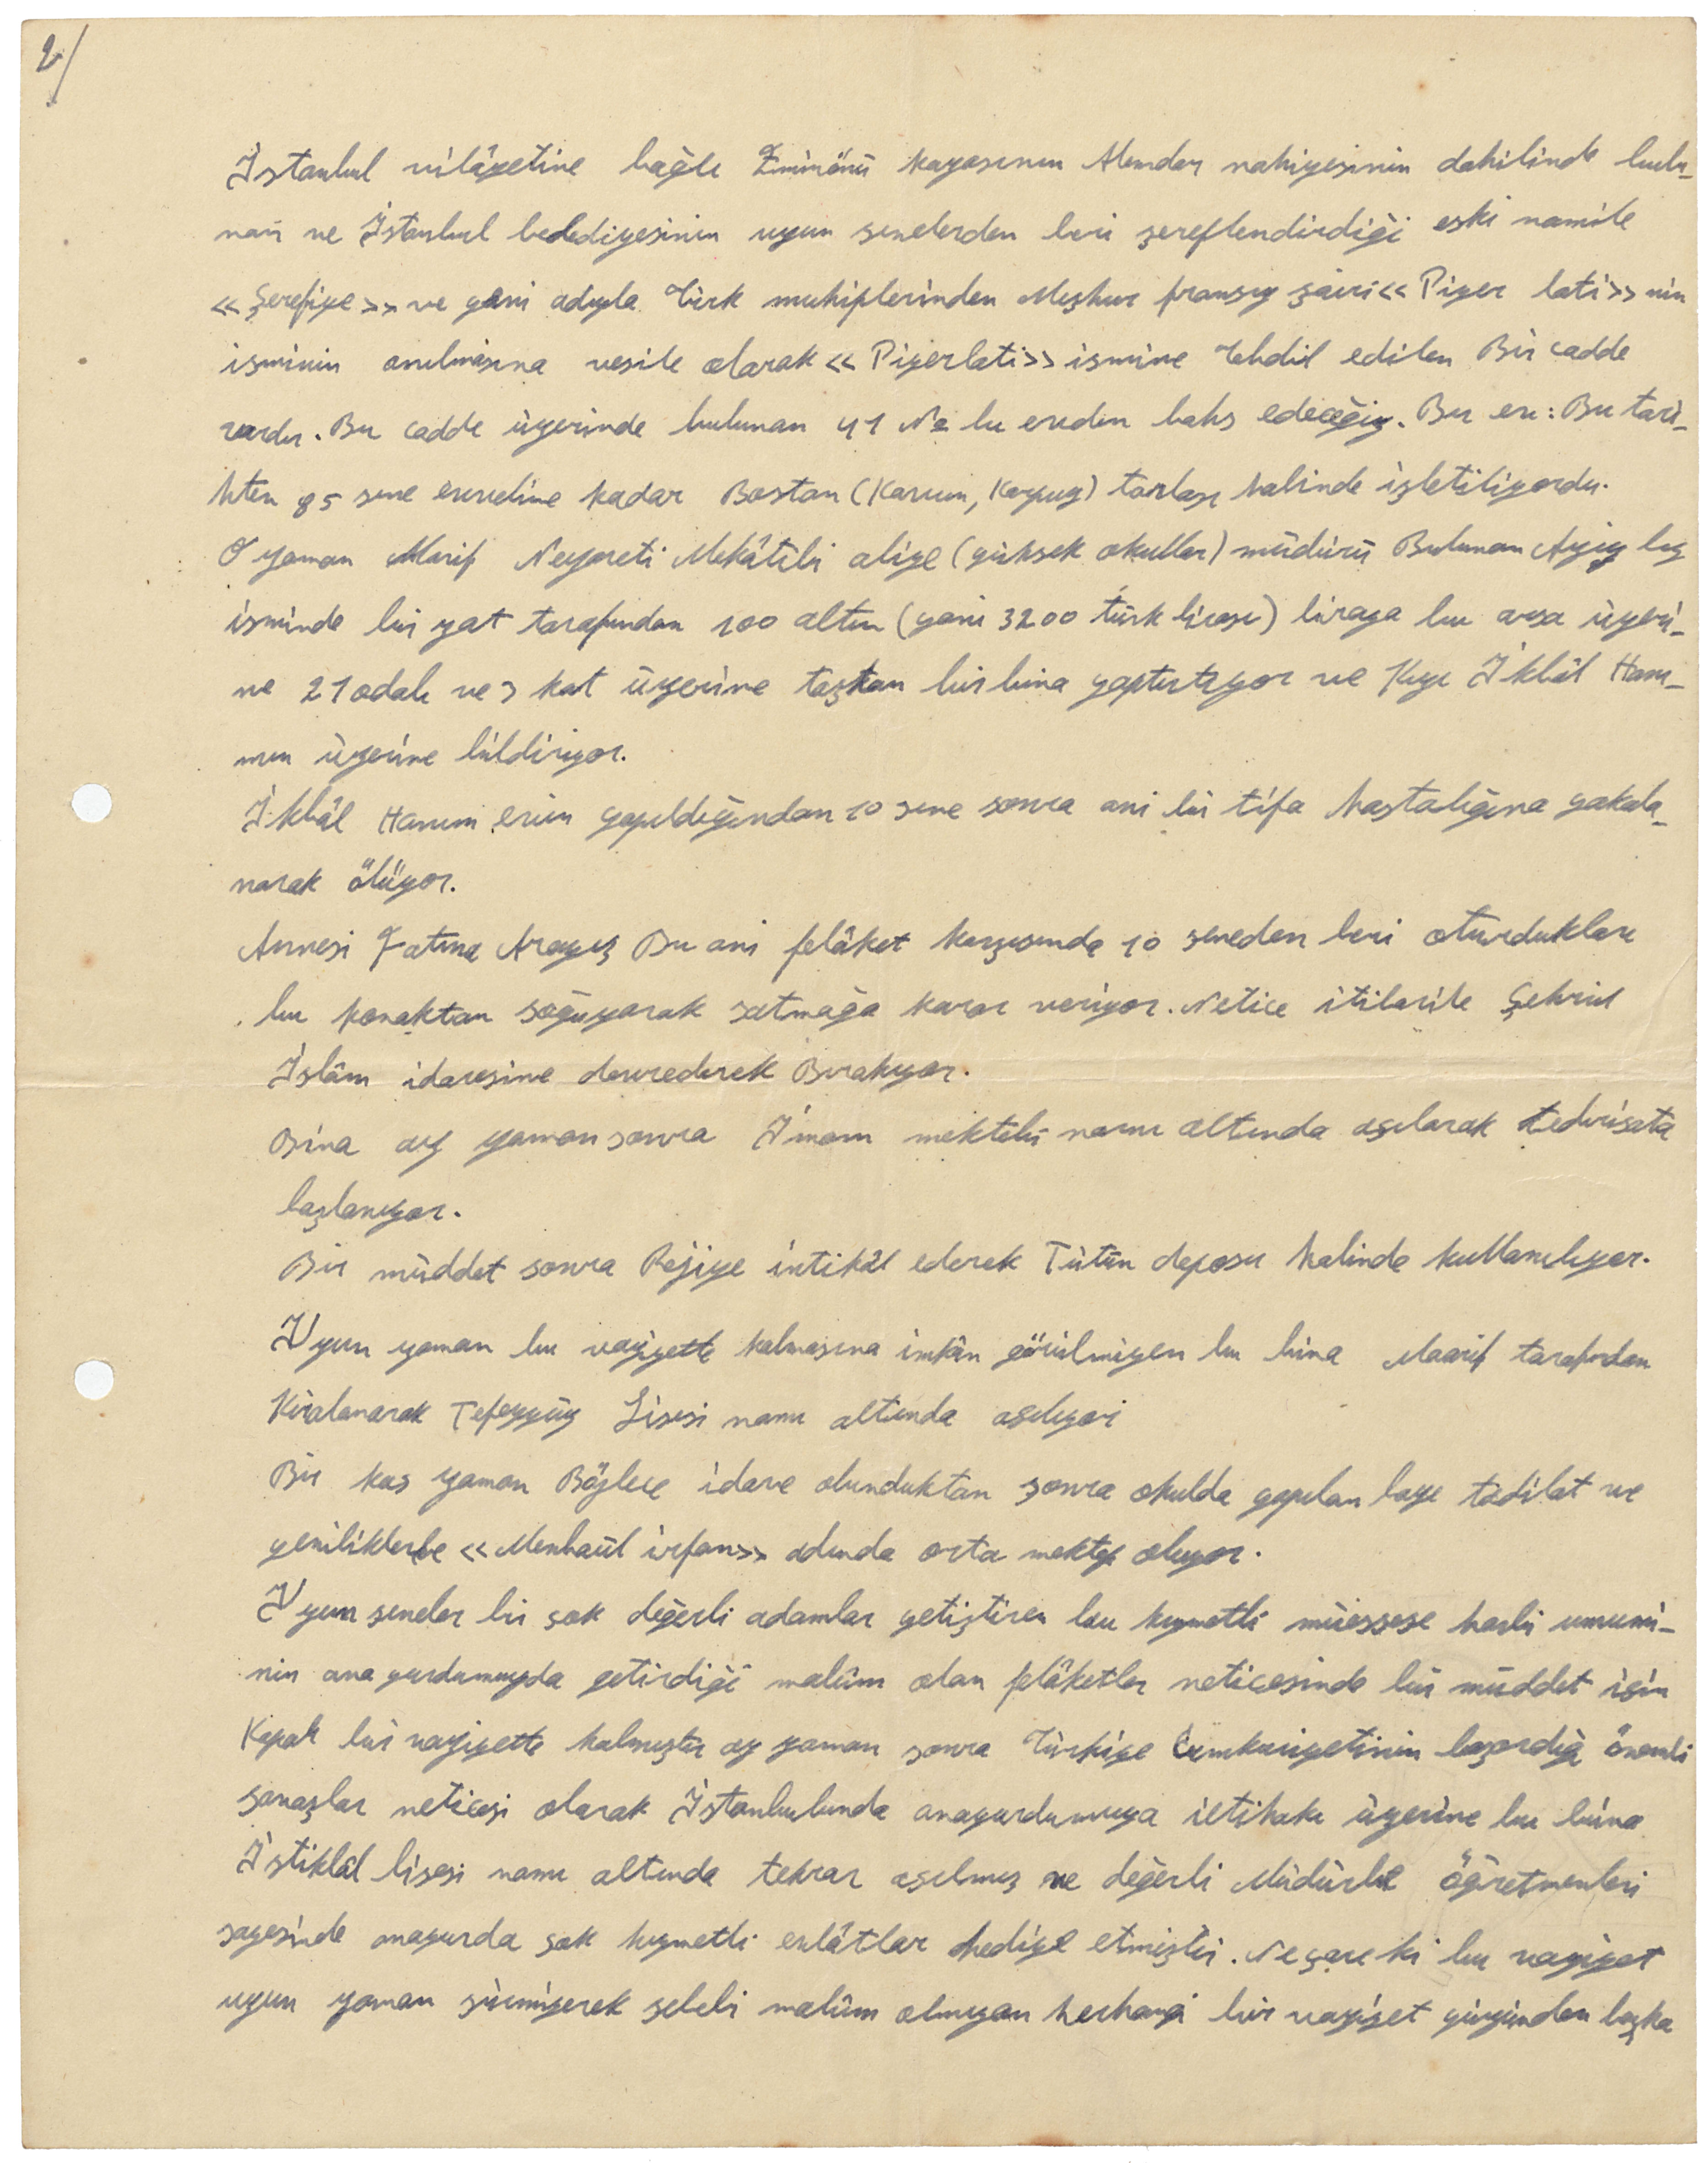 2/
İstanbul vilâyetine bağlı Eminönü kazasının Alemdar nahiyesinin dahilinde bulu_
nan ve İstanbul belediyesinin uzun senelerden beri şereflendirdiği eski namile
<< Şerefiye >> ve yeni adıyla Türk muhiplerinden Meşhur fransız şairi << Piyer loti >> nin
isminin anılmasına vesile olarak << Piyerloti >> ismine tebdil edilen Bir cadde
vardır. Bu cadde üzerinde bulunan 41 No lu evden bahs edeceğiz. Bu ev: Bu tari_
hten 85 sene evveline kadar Bostan (Kavun, Karpuz) tarlası halinde işletiliyordu.
O zaman Marif Nezareti Mekâtibi aliye (yüksek okullar) müdürü Bulunan Aziz bey
isminde bir zat tarafından 100 altın (yani 3200 türk lirası) liraya bu arsa üzeri_
ne 21 odalı ve 3 kat üzerine taştan bir bina yaptırtıyor ve Kızı İkbâl Hanı_
mın üzerine bildiriyor.
İkbâl Hanım evin yapıldığından 10 sene sonra ani bir tifo hastalığına yakala_
narak ölüyor.
Annesi Fatma Arayış Bu ani felâket karşısında 10 seneden beri oturdukları
bu konaktan soğuyarak satmağa karar veriyor. Netice itibarile Şehrül
İslâm idaresine devrederek Bırakıyor.
Bina az zaman sonra İmam mektebi namı altında açılarak tedrisata
başlanıyor.
Bir müddet sonra Rejiye intikâl ederek Tütün deposu halinde kullanılıyor.
Uzun zaman bu vaziyette kalmasına imkân görülmiyen bu bina Maarif tarafından
Kiralanarak Tefeyyüz Lisesi namı altında açılıyor
Bir kaç zaman Böylece idare olunduktan sonra okulda yapılan bazı tadilat ve
yeniliklerle << Menbaül irfan >> adında orta mektep oluyor.
Uzun seneler bir çok değerli adamlar yetiştiren bu kıymetli müessese harbi umumi_
nin ana yurdumuzda getirdiği malûm olan felâketler neticesinde bir müddet için
Kapalı bir vaziyette kalmıştır az zaman sonra Türkiye Cumhuriyetinin başardığı önemli
savaşlar neticesi olarak İstanbulunda anayurdumuza iltihakı üzerine bu bina
İstiklâl lisesi namı altında tekrar açılmış ve değerli Müdürle öğretmenleri
sayesinde anayurda çok kıymetli evlâtlar hediye etmiştir. Ne çare ki bu vaziyet
uzun zaman sürmiyerek sebebi malûm olmıyan herhangi bir vaziyet yüzünden başka